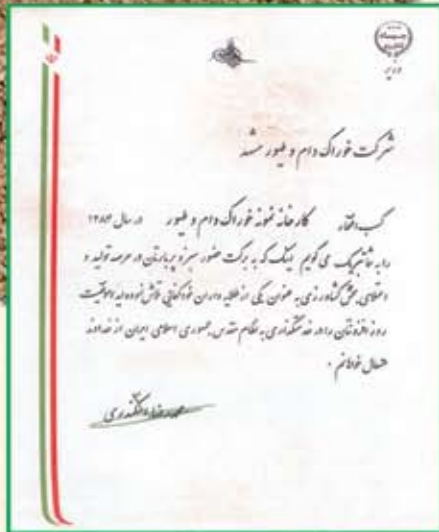 وزیر
شرکت خوراک دام و طیور مشهد
کسب افتخار کارخانه نمونه خوراک دام و طیور در سال ۱۳۸۴
را به شما تبریک می گویم اینک که به برکت حضور سبز و پربارتان در عرصه تولید و
اعتلای بخش کشاورزی به عنوان یکی از طلایه داران خودکفایی تلاش نموده اید موفقیت
روز افزونتان را در خدمتگذاری به نظام مقدس جمهوری اسلامی ایران از خداوند
متعال خواهانم .
محمدرضا اسکندری